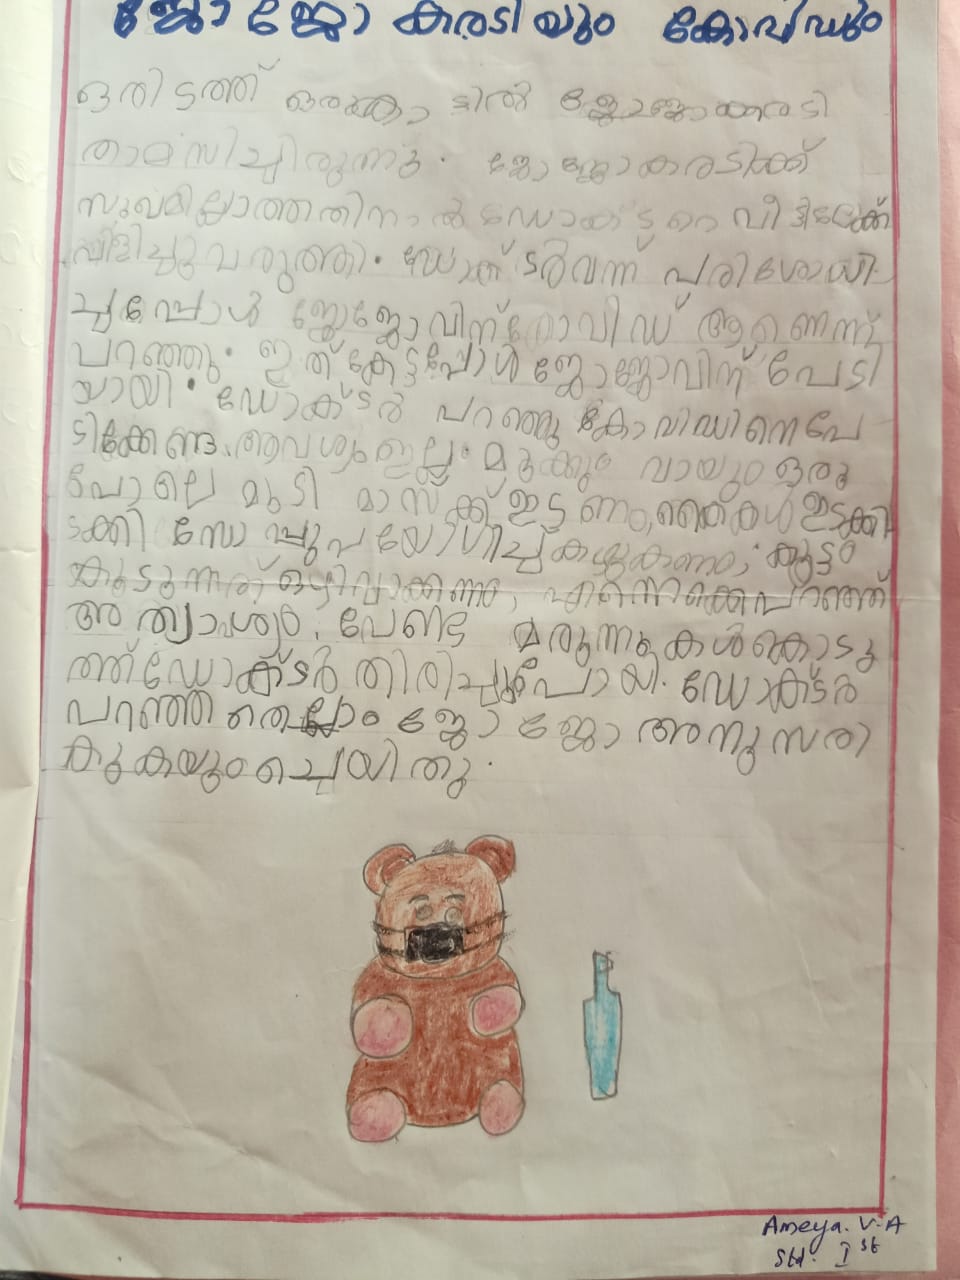 ജോ ജോ കരടിയും കോവിഡും
ഒരിടത്ത് ഒരുകാട്ടിൽ ജോജോകരടി
താമസിച്ചിരുന്നു. ജോജോകരടിക്ക്
സുഖമില്ലാത്തതിനാൽ ഡോക്ടറെ വീട്ടിലേക്ക്
വിളിച്ചുവരുത്തി. ഡോക്ടർവന്ന് പരിശോധി
ച്ചപ്പോൾ ജോജോവിന് കോവിഡ് ആണെന്ന്
പറഞ്ഞു. ഇത് കേട്ടപ്പോൾ ജോജോവിന് പേടി
യായി. ഡോക്ടർ പറഞ്ഞു കോവിഡിനെപേ
ടിക്കേണ്ട ആവശ്യം ഇല്ല. മൂക്കും വായും ഒരു
പോലെ മൂടി മാസ്ക്ക് ഇടണം, കൈകൾ ഇടക്കി
ടക്കി സോപ്പുപയോഗിച്ച് കഴുകണം, കൂട്ടം
കൂടുന്നത് ഒഴിവാക്കണം, എന്നൊക്കെപറഞ്ഞ്
അത്യാവശ്യം വേണ്ട മരുന്നുകൾകൊടു
ത്ത് ഡോക്ടർ തിരിച്ചുപോയി. ഡോക്ടർ
പറഞ്ഞതെല്ലാം ജോ ജോ അനുസരി
കുകയും ചെയിതു.
Ameya. V.A
Std. I st